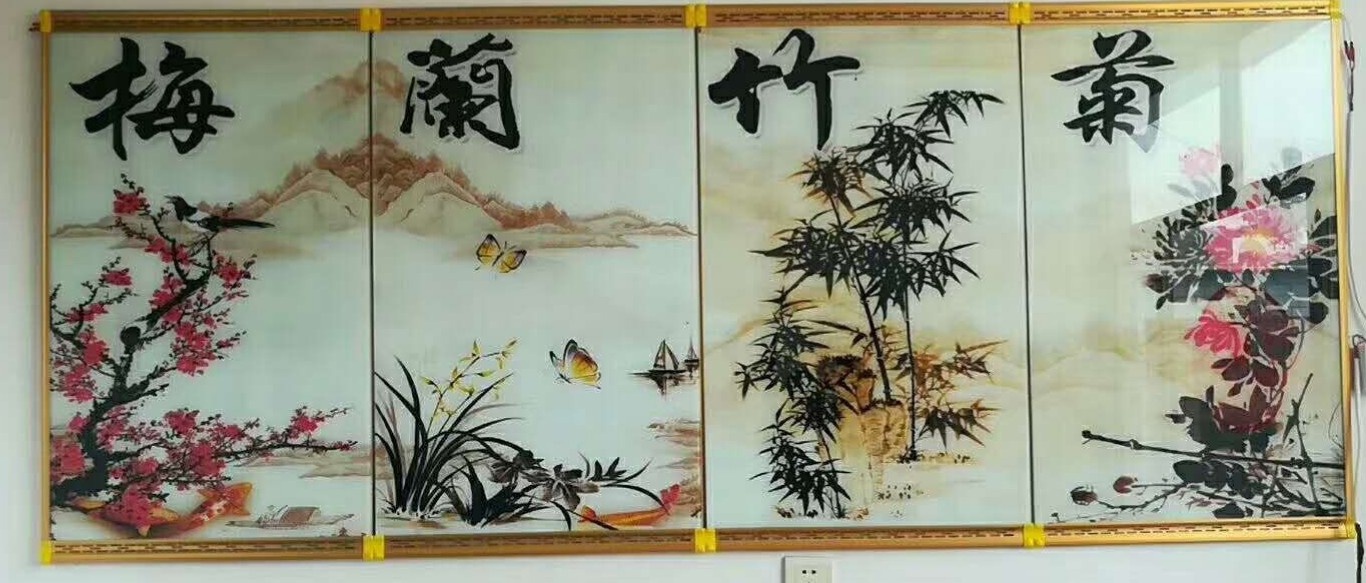 梅 蘭 竹 菊